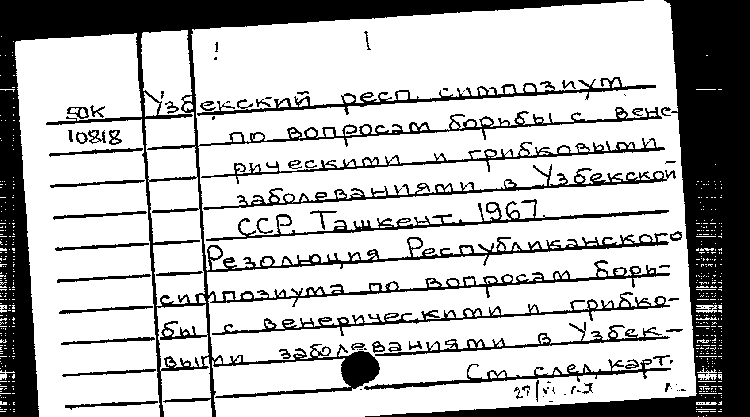 50К Узбекский респ. симпозиум
10818 по вопросам борьбы с вене-
рическими и грибковыми
заболеваниями в Узбекской
ССР. Ташкент. 1967.
Резолюция Республиканского
симпозиума по вопросам борь-
бы с венерическими и грибко-
выми заболеваниями в Узбек-
См. след. карт.